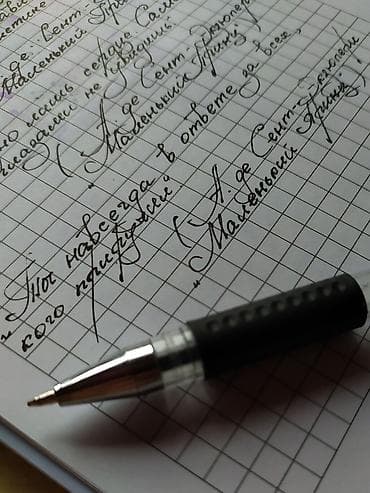 де Сент-
Маленький Принц"
но лишь сердце
глазами не увидишь"
( А. де Сент-Экзюпери
"Маленький Принц")
"Ты навсегда в ответе за всех,
кого приручил"
( А. де Сент-Экзюпери
"Маленький Принц")